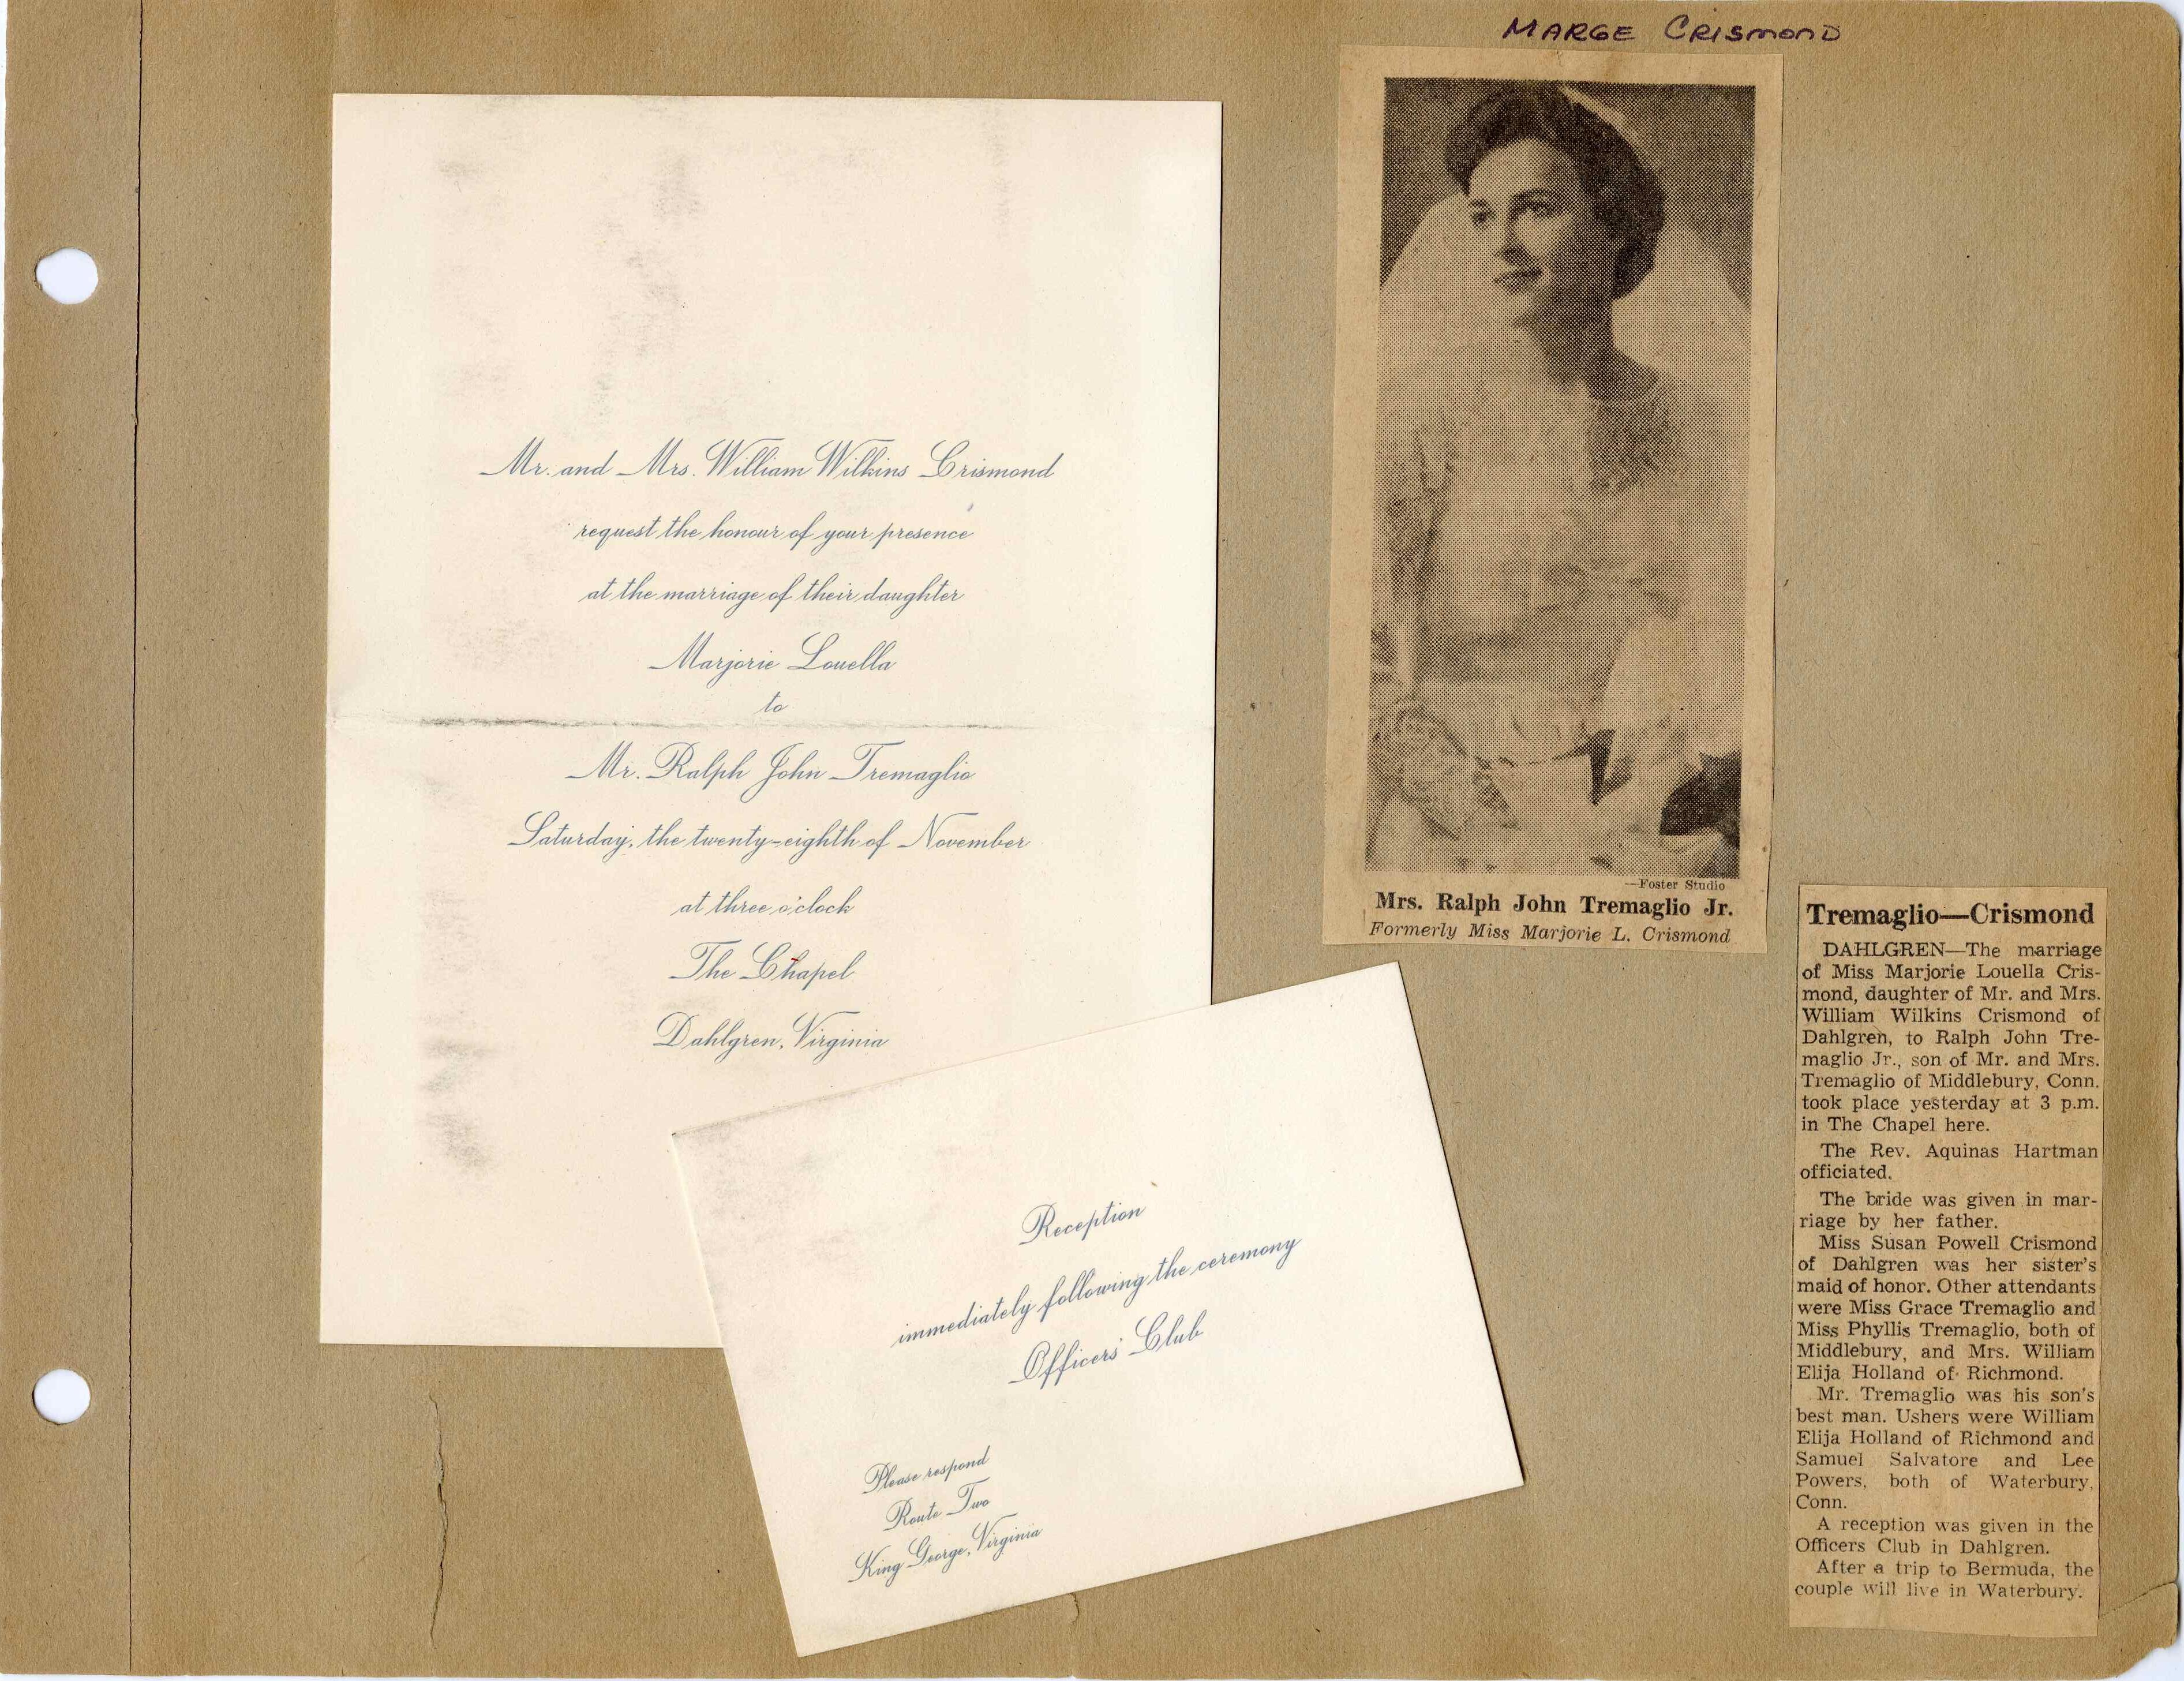 MARGE CRISMOND
Mr. and Mrs. William Wilkins Crismond
request the honour of your presence
at the marriage of their daughter
Marjorie Louella
to
Mr. Ralph John Tremaglio
Saturday, the twenty-eighth of November
at three o'clock
The Chapel
Dahlgren, Virginia
Reception
immediately following the ceremony
Officers' Club
Please respond
Route Two
King George, Virginia
—Foster Studio
Mrs. Ralph John Tremaglio Jr.
Formerly Miss Marjorie L. Crismond
Tremaglio—Crismond
DAHLGREN—The marriage
of Miss Marjorie Louella Cris-
mond, daughter of Mr. and Mrs.
William Wilkins Crismond of
Dahlgren, to Ralph John Tre-
maglio Jr., son of Mr. and Mrs.
Tremaglio of Middlebury, Conn.
took place yesterday at 3 p.m.
in The Chapel here.
The Rev. Aquinas Hartman
officiated.
The bride was given in mar-
riage by her father.
Miss Susan Powell Crismond
of Dahlgren was her sister's
maid of honor. Other attendants
were Miss Grace Tremaglio and
Miss Phyllis Tremaglio, both of
Middlebury, and Mrs. William
Elija Holland of Richmond.
Mr. Tremaglio was his son's
best man. Ushers were William
Elija Holland of Richmond and
Samuel Salvatore and Lee
Powers, both of Waterbury,
Conn.
A reception was given in the
Officers Club in Dahlgren.
After a trip to Bermuda, the
couple will live in Waterbury.